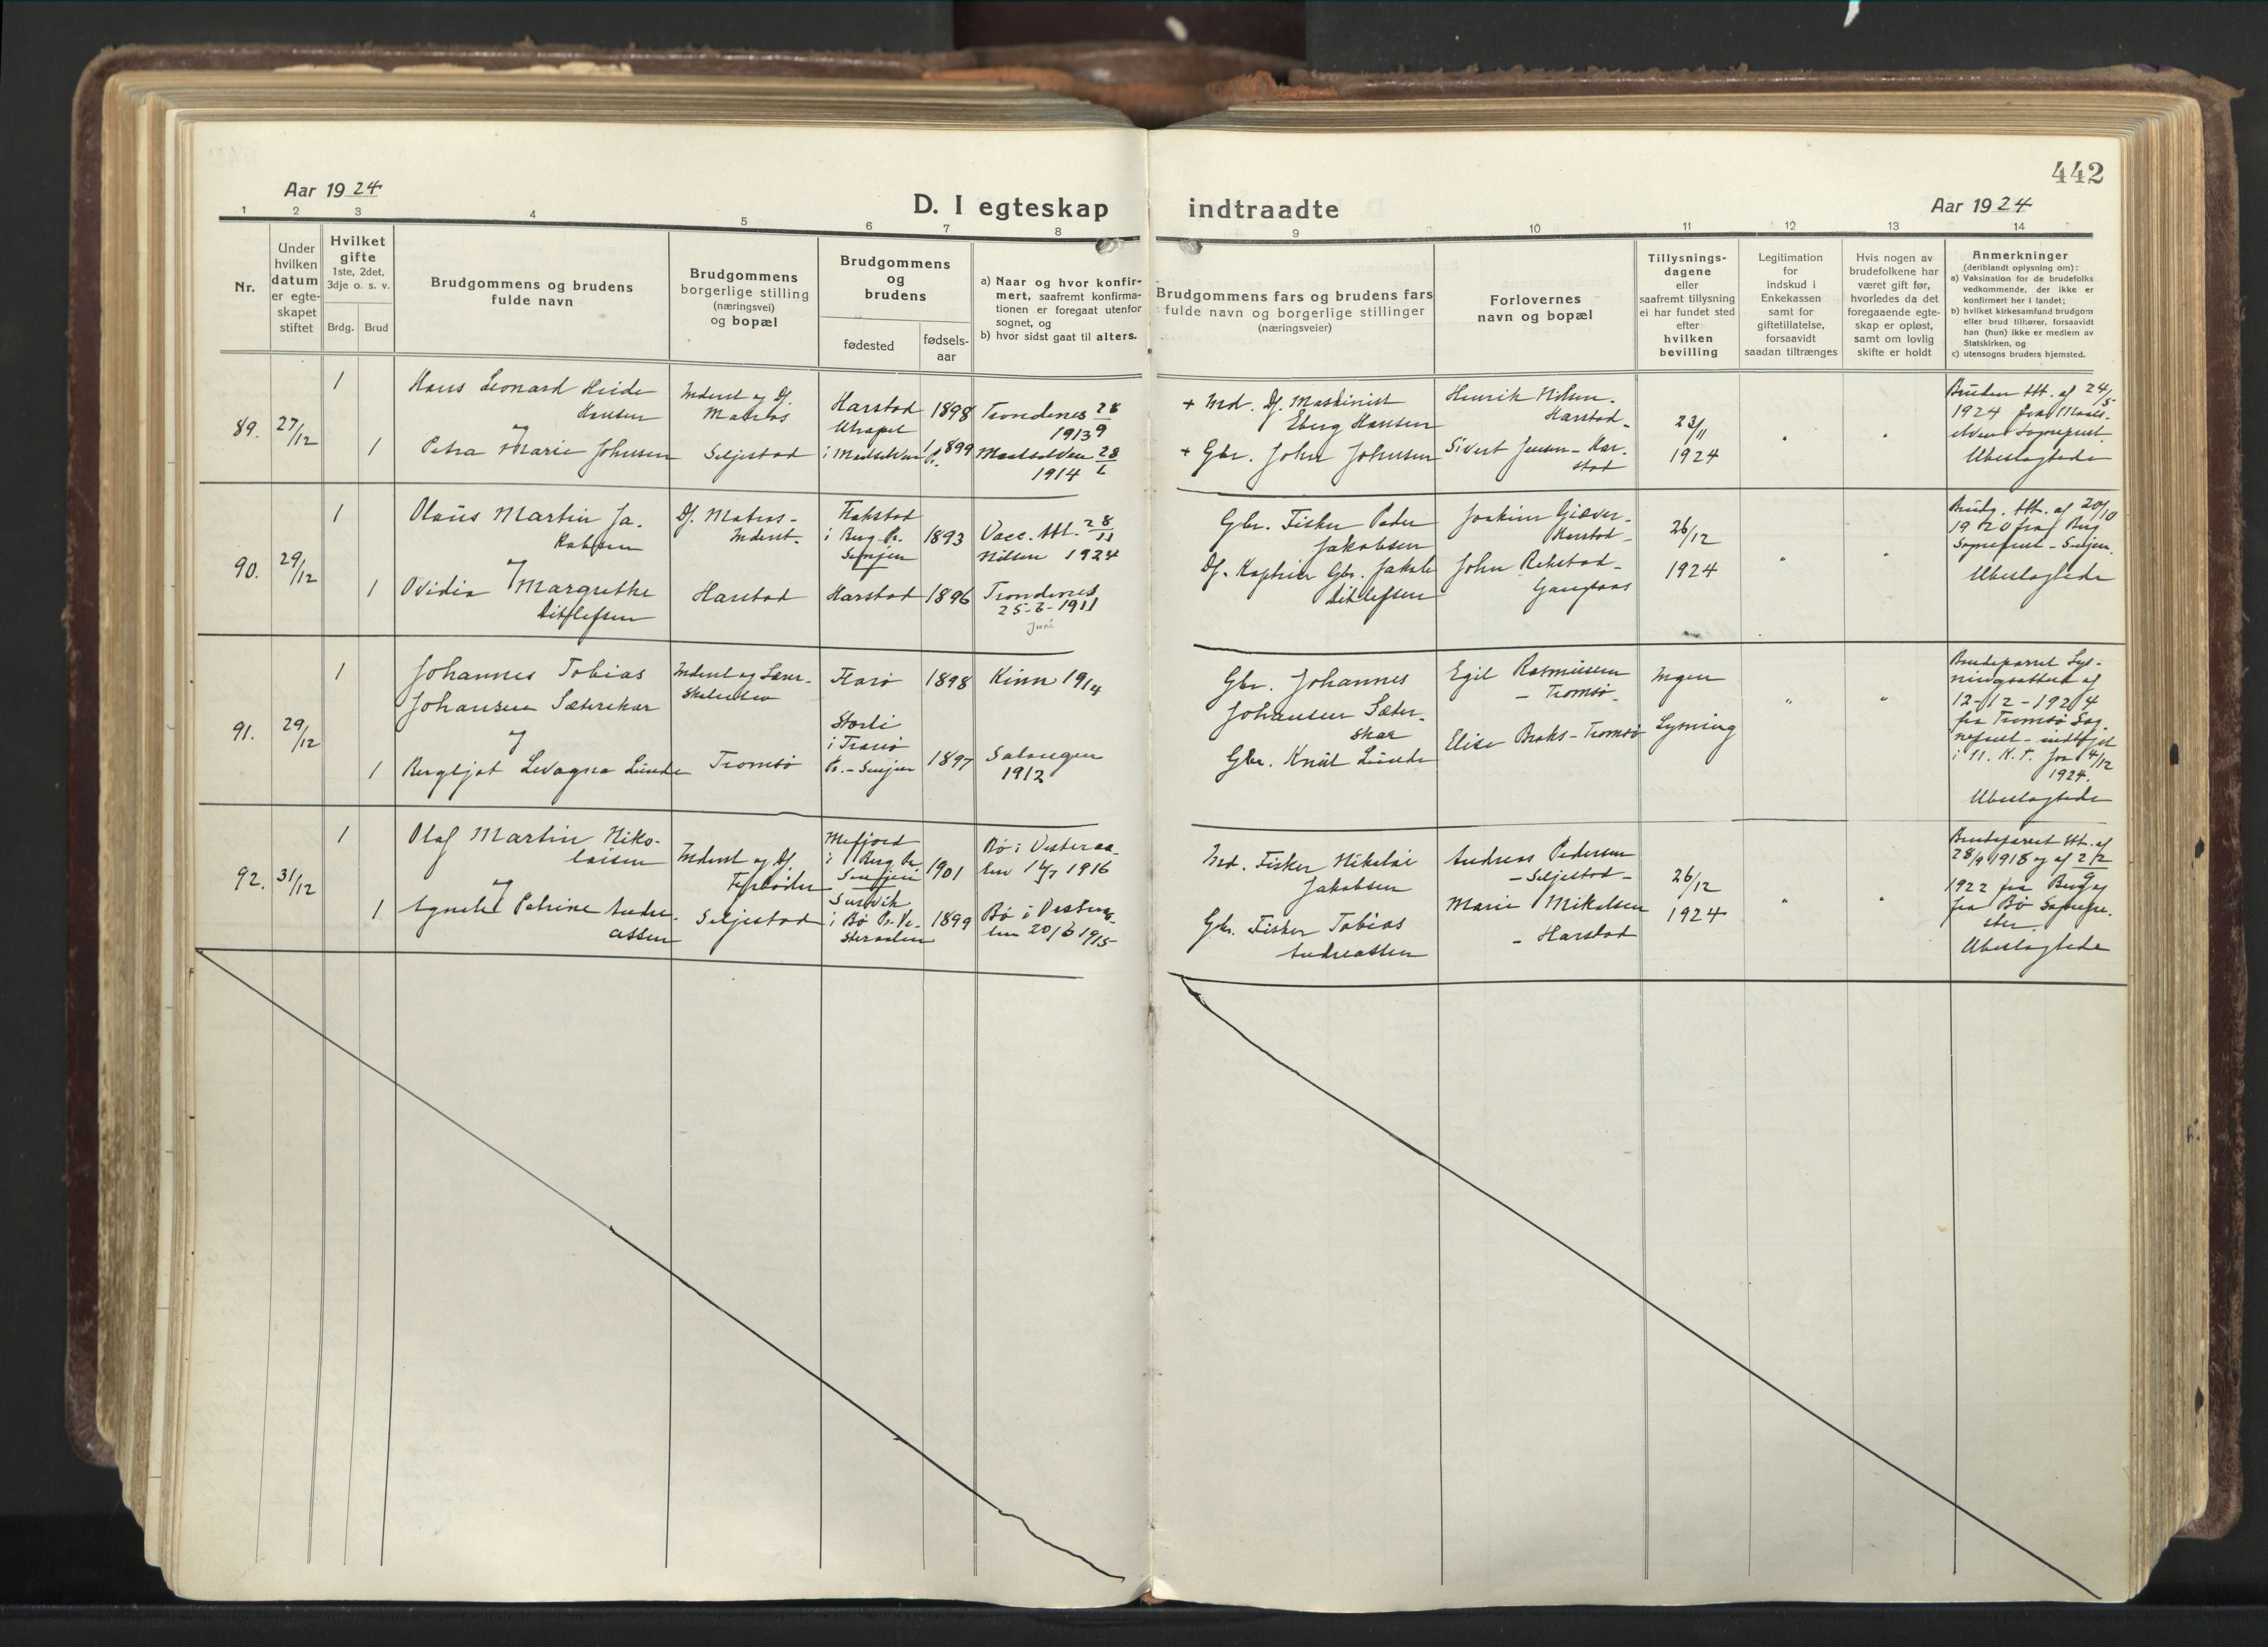 442
Aar 1924
D. I egteskap
indtraadte
Aar 1924
1 2 3 4 5 6 7 8 9 10 11 12 13 14
Nr.
Under
hvilken
datum
er egte-
skapet
stiftet
Hvilket
gifte
1ste, 2det,
3dje o. s. v.
Brdg. Brud
Brudgommens og brudens
fulde navn
Brudgommens
borgerlige stilling
(næringsvei)
og bopæl
Brudgommens
og
brudens
fødested
fødsels-
aar
a) Naar og hvor konfir-
mert, saafremt konfirma-
tionen er foregaat utenfor
sognet, og
b) hvor sidst gaat til alters.
Brudgommens fars og brudens fars
fulde navn og borgerlige stillinger
(næringsveier)
Forlovernes
navn og bopæl
Tillysnings-
dagene
eller
saafremt tillysning
ei har fundet sted
efter
hvilken
bevilling
Legitimation
for
indskud i
Enkekassen
samt for
giftetillatelse,
forsaavidt
saadan tiltrænges
Hvis nogen av
brudefolkene har
været gift før,
hvorledes da det
foregaaende egte-
skap er opløst,
samt om lovlig
skifte er holdt
Anmerkninger
(deriblandt oplysning om):
a) Vaksination for de brudefolks
vedkommende, der ikke er
konfirmert her i landet;
b) hvilket kirkesamfund brudgom
eller brud tilhører, forsaavidt
han (hun) ikke er medlem av
Statskirken, og
c) utensogns bruders hjemsted.
89. 27/12
1
Hans Leonard
Hansen
1
Petra Marie Johnsen
Inderst og Df.
Matros
Seljestad
Harstad 1898
i Maalselven 1899
Trondenes 28/9
1913
Maalselven 28/6
1914
+ Ind. Df. Maskinist
Eberg Hansen
+ Gbr. John Johnsen
Henrik Nilsen -
Harstad -
Sivert Jensen - Har-
stad
23/11
1924
" "
Bruden Att. af 24/5
1924 fra Maals-
elven Sogneprest.
Ubeslægtede
90. 29/12
1
Olaus Martin Ja-
kobsen
1
Ovidia Margrethe
Ditlefsen
Df. Matros -
Inderst -
Harstad
i Berg Pr.
Senjen
1893
Harstad 1896
Vacc. Att. 28/11
Nilsen 1924
Trondenes
25-6-1911
Juni
Gbr. Fisker Peder
Jakobsen
Df. Gbr. Jakob
Ditlefsen
Joakim Giæver -
Harstad -
John Rekstad -
26/12
1924
" "
Brudg. Att. af 20/10
1920 fra Berg
Sogneprest - Senjen.
Ubeslægtede
91. 29/12
1
Johannes Tobias
Johansen Sæterskar
1
Bergljot Levagna Lunde
Inderst og Lærer-
skoleelev
Tromsø
Florø 1898
i Tranø
Pr. - Senjen
1897
Kinn 1914
Salangen
1912
Gbr. Johannes
Johansen Sæter-
skar
Gbr. Knut Lunde
Egil Rasmussen
- Tromsø -
Elise Braks - Tromsø
Ingen
Lysning
" "
Brudeparret Lys-
ningsattest af
12-12-1924
fra Tromsø Sog-
neprest - indtojet
i N. T. for 4/12
1924.
Ubeslægtede
92. 31/12
1
Olaf Martin Niko-
laisen
1
Agnete Petrine Andre-
assen
Inderst og Df.
Fyrbøder
Seljestad
Mefjord
i Berg Pr.
Senjen
1901
i Bø Pr. Ve-
steraalen
1899
Bø i Vesteraa-
len 1916
Bø i Vesteraa-
len 20/6 1915
Ind. Fisker Nikolai
Jakobsen
Gbr. Fisker Tobias
Andreassen
Andreas Pedersen
- Seljestad -
Marie Mikalsen
- Harstad
26/12
1924
" "
Brudeparret Att. af
28/9 1918 og af 2/2
1922 fra Berg og
fra Bø Sognepre-
ster.
Ubeslægtede